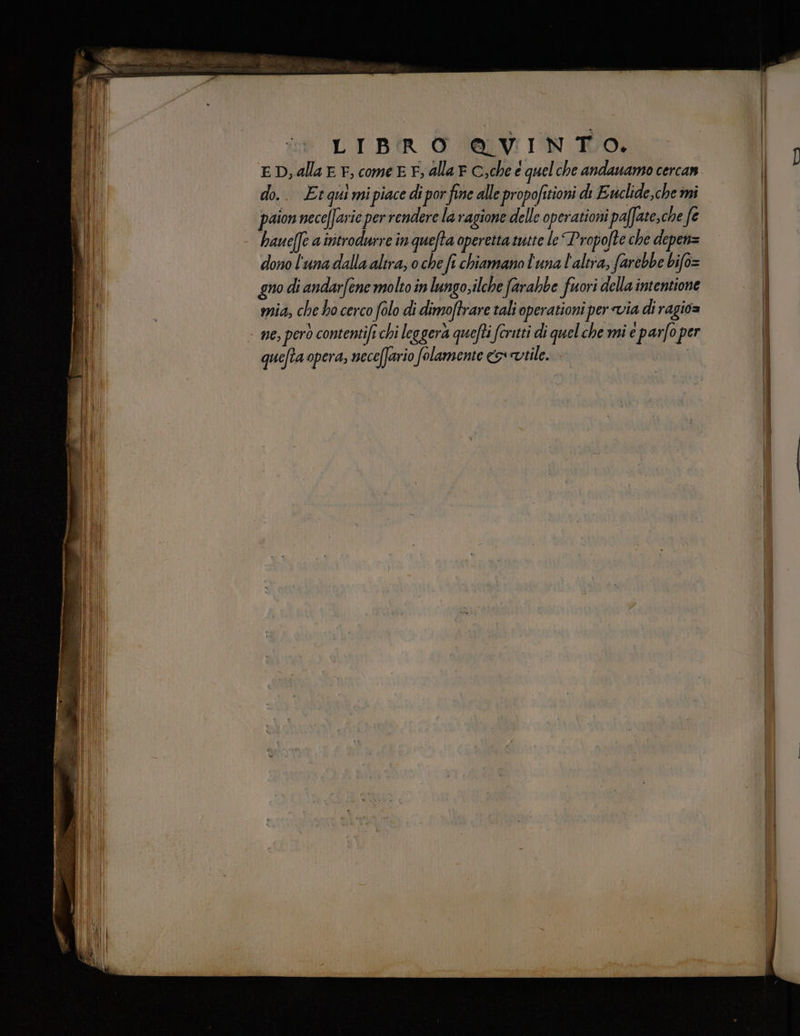 LIBRO QVINTO.
E D, alla E F, come E F, alla F C,che é quel che andauamo cercan
do. Et qui mi piace di por fine alle propoſitioni di Euclide,che mi
paion neceſſarie per rendere la ragione delle operationi paſſate,che ſe
haueſſe a introdurre in queſta operetta tutte le Propoſte che depen=
dono l'una dalla altra, o che ſi chiamano l'una l'altra, ſarebbe biſo=
gno di andarſene molto in lungo,ilche ſarabbe fuori della intentione
mia, che ho cerco ſolo di dimoſtrare tali operationi per via di ragio=
ne, però contentiſi chi leggerà queſti ſcritti di quel che mi è parſo per
queſta opera, neceſſario ſolamente & vtile.